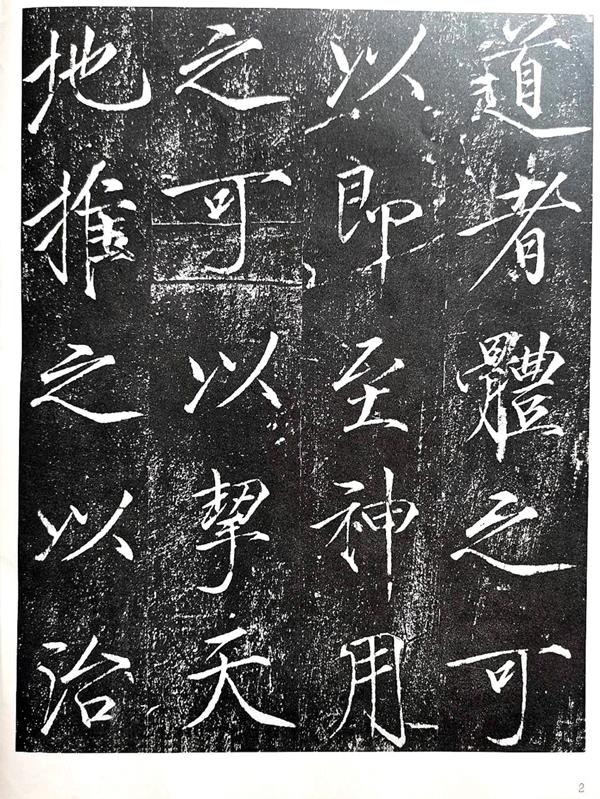 道者體之可
以即至神用
之可以挈天
地推之以治
2